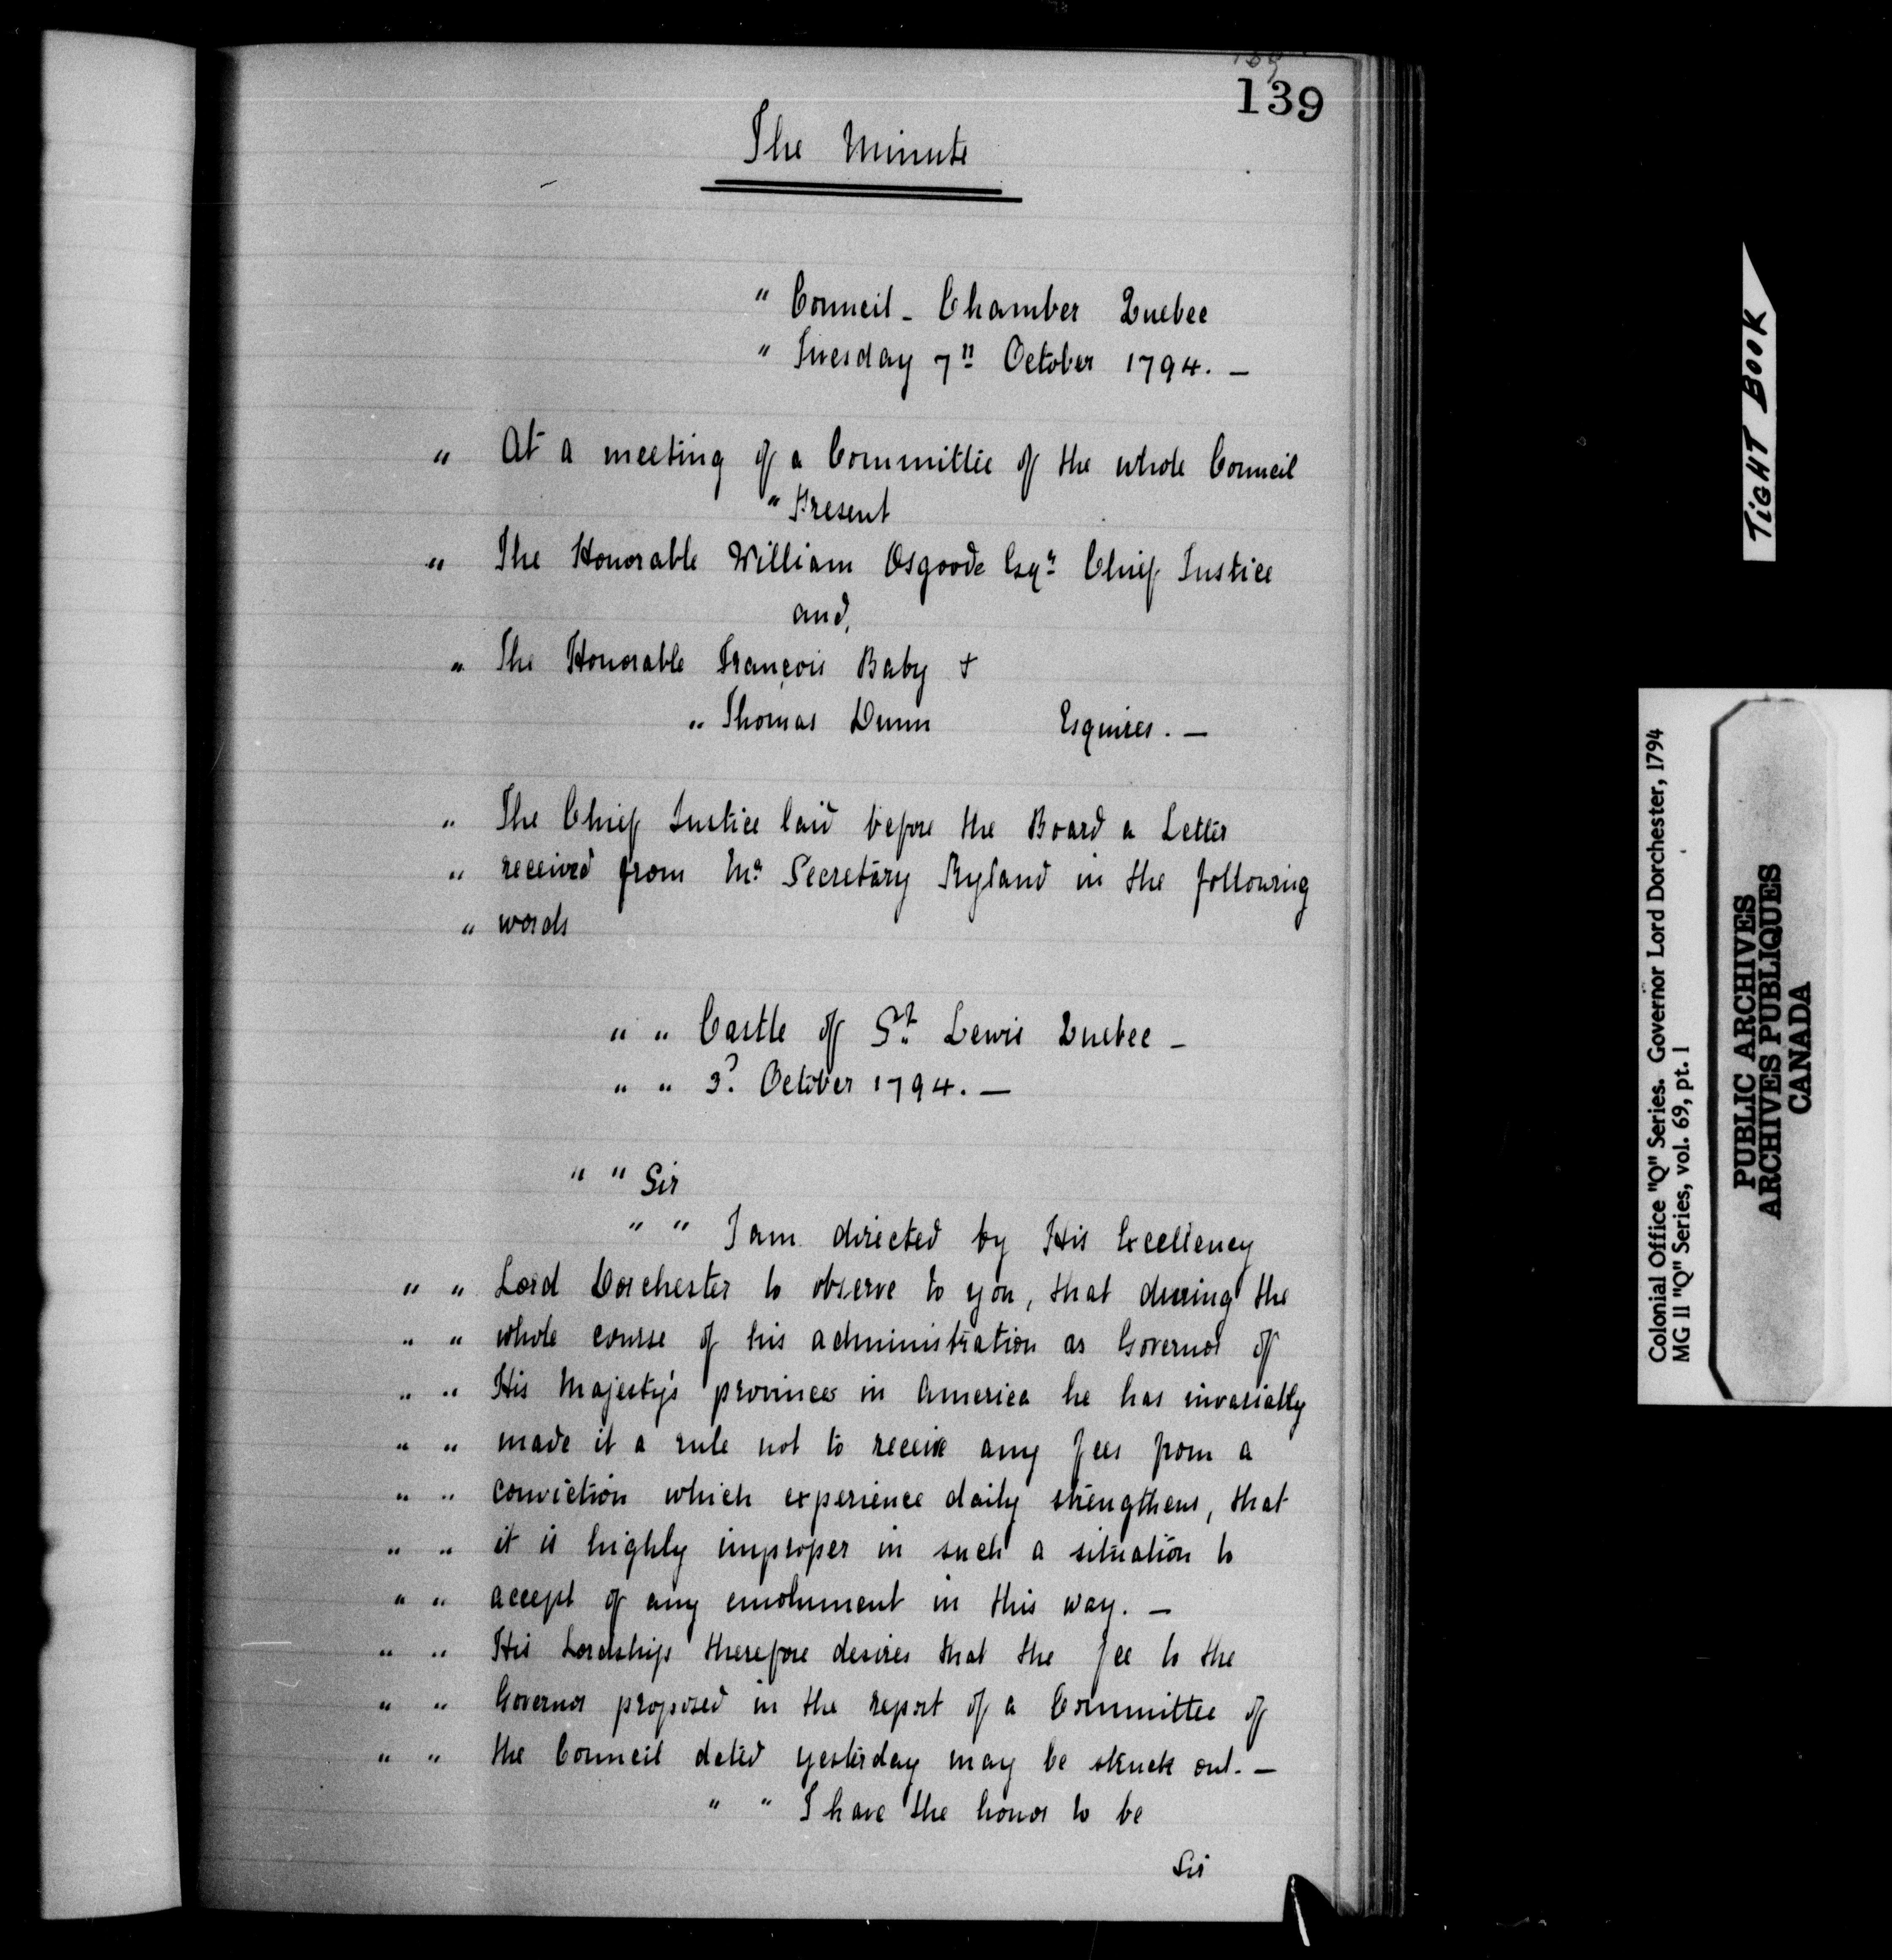 139
The Minute
" Council - Chamber Quebec
" Tuesday 7th October 1794. —
" At a meeting of a Committee of the whole Council
" Present
" The Honorable William Osgoode Esqr Chief Justice
and,
" The Honorable François Baby &
" Thomas Dunn Esquires. —
" The Chief Justice laid before the Board a Letter
" received from Mr Secretary Ryland in the following
" words
" " Castle of St Lewis Quebec —
" " 3d October 1794. —
" " Sir
" " I am directed by His Excellency
" " Lord Dorchester to observe to you, that during the
" " whole course of his administration as Governor of
" " His Majesty's provinces in America he has invariably
" " made it a rule not to receive any fees from a
" " conviction which experience daily strengthens, that
" " it is highly improper in such a situation to
" " accept of any emolument in this way. —
" " His Lordship therefore desires that the fee to the
" " Governor proposed in the report of a Committee of
" " the Council dated yesterday may be struck out. —
" " I have the honor to be
Sir
TIGHT BOOK
Colonial Office "Q" Series. Governor Lord Dorchester, 1794
MG 11 "Q" Series, vol. 69, pt. 1
PUBLIC ARCHIVES
ARCHIVES PUBLIQUES
CANADA